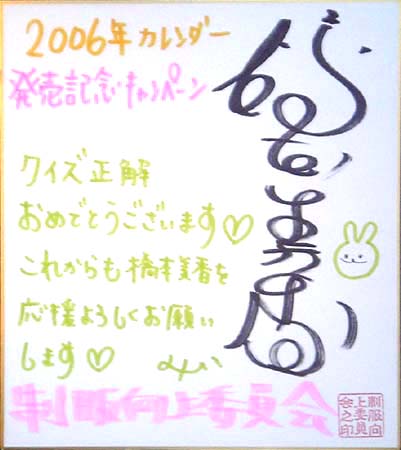 2006年 カレンダー
発売記念キャンペーン
クイズ正解
おめでとうございます♡
これからも橋本美香を
応援よろしくお願い
します♡
制服向上委員会
制服向
上委員
会之印